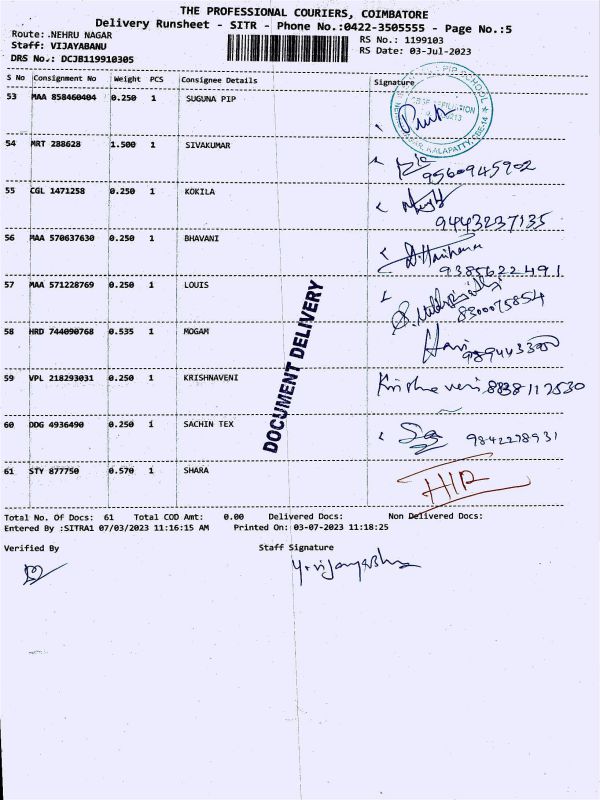 THE PROFESSIONAL COURIERS, COIMBATORE
Delivery Runsheet - SITR - Phone No.:0422-3505555 - Page No.:5
Route: .NEHRU NAGAR
RS No.: 1199103
Staff: VIJAYABANU
RS Date: 03-Jul-2023
DRS No.: DCJB119910305
S No Consignment No Weight PCS Consignee Details Signature
53 MAA 858460404 0.250 1 SUGUNA PIP
PIP SCHOOL
54 MRT 288628 1.500 1 SIVAKUMAR
9560945902
55 CGL 1471258 0.250 1 KOKILA
9443237135
56 MAA 570637630 0.250 1 BHAVANI
9385622491
57 MAA 571228769 0.250 1 LOUIS
8300075854
58 HRD 744090768 0.535 1 MOGAM
Hari
59 VPL 218293031 0.250 1 KRISHNAVENI Krishna veni 8838117530
60 DDG 4936490 0.250 1 SACHIN TEX 9842278931
61 STY 877750 0.570 1 SHARA
DOCUMENT DELIVERY
Total No. Of Docs: 61 Total COD Amt: 0.00 Delivered Docs: Non Delivered Docs:
Entered By :SITRA1 07/03/2023 11:16:15 AM Printed On: 03-07-2023 11:18:25
Verified By Staff Signature